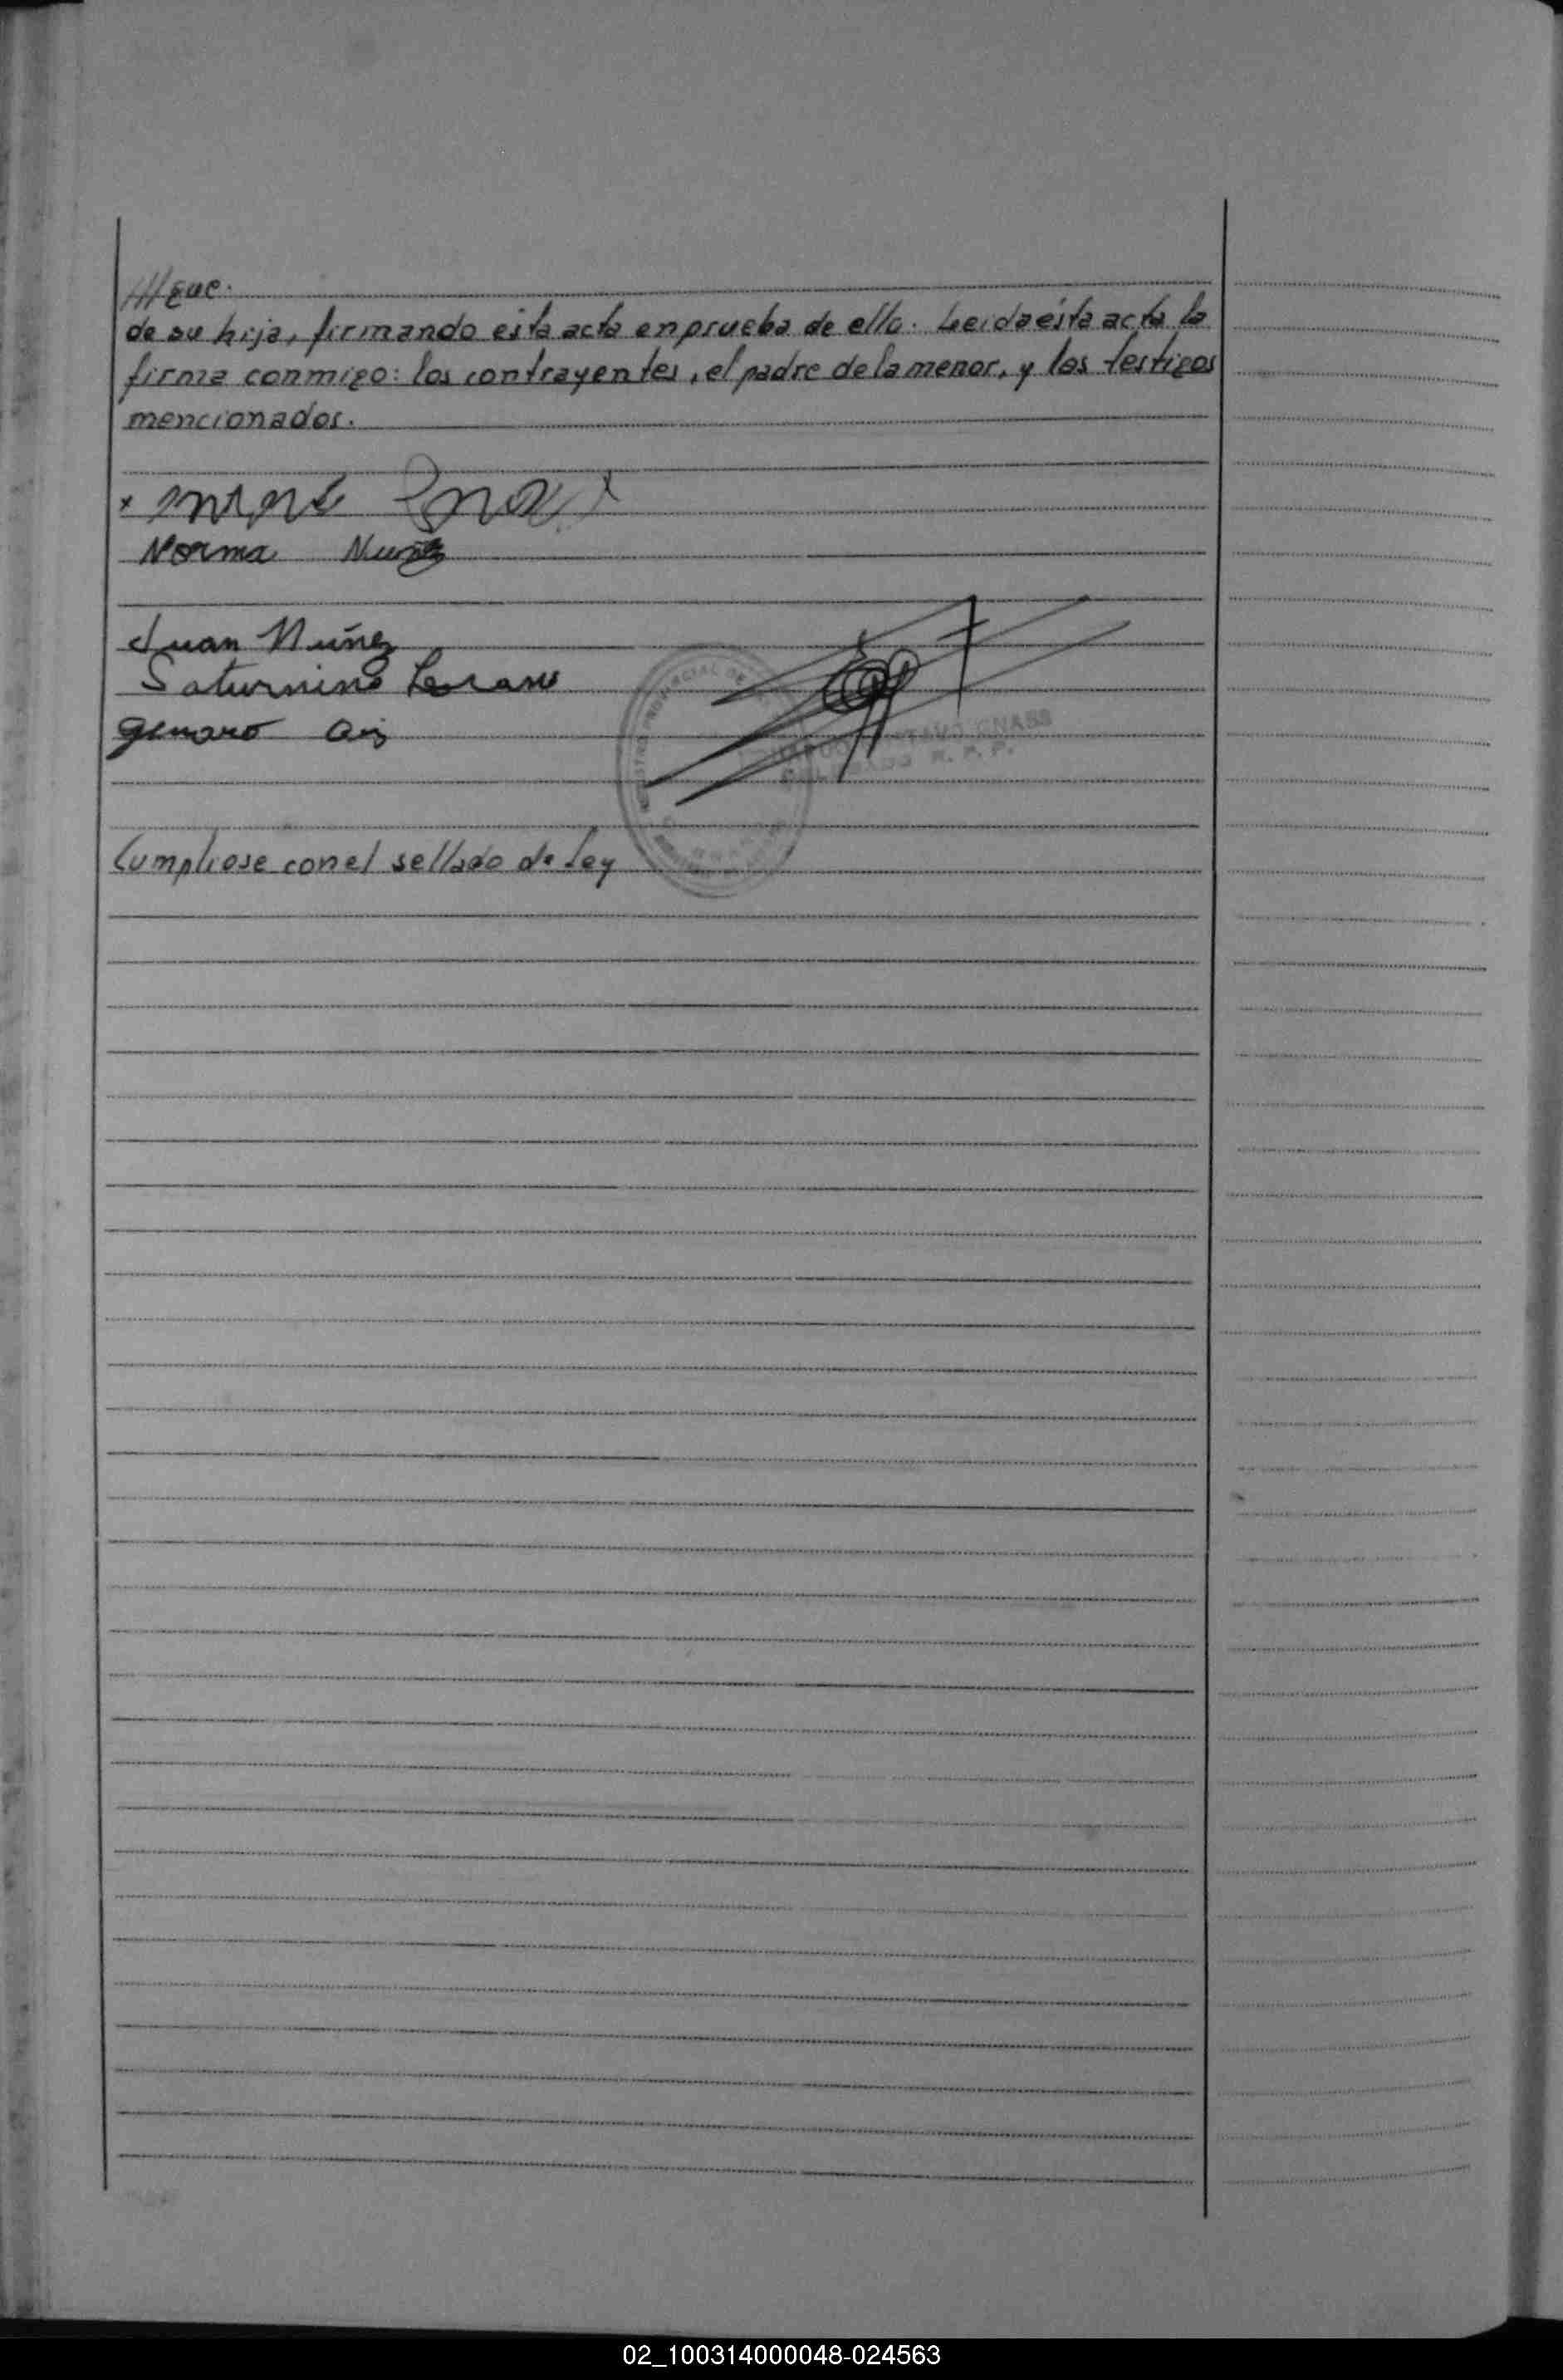 ///gue.
de su hija, firmando esta acta en prueba de ello. Leida ésta acta la
firma conmigo: los contrayentes, el padre de la menor, y los testigos
mencionados.
x
Norma Nuñez
Juan Nuñez
Saturnino
Genaro
R. P. P.
Cumpliose con el sellado de Ley
02_100314000048-024563